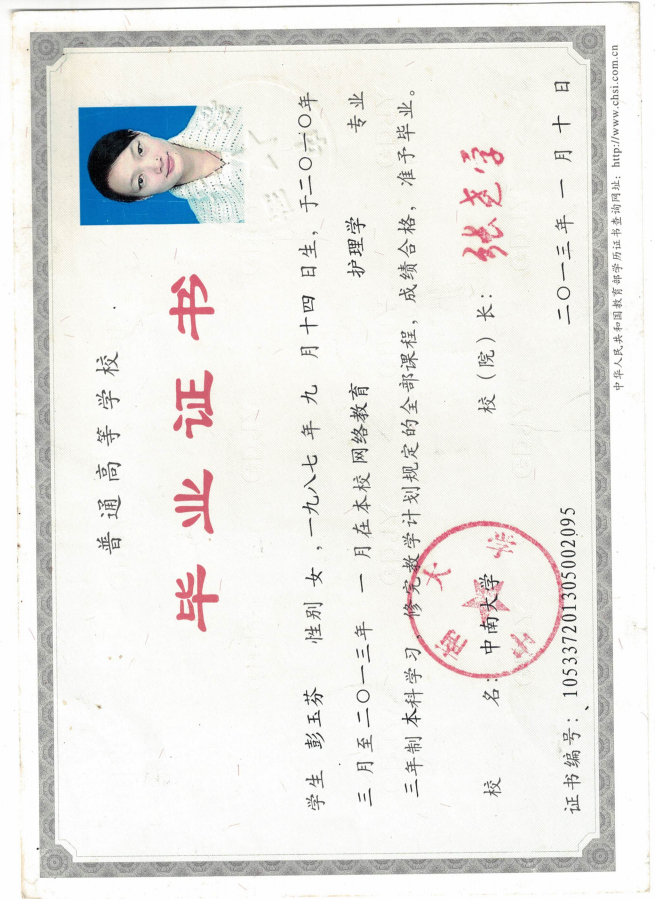 普通高等学校
毕业证书
学生 彭玉芬 性别 女 ，一九八七 年 九 月 十四 日生，于二〇一〇年
三 月至二〇一三年 一 月在本校 网络教育 护理学 专业
三年制 本科学习，修完教学计划规定的全部课程，成绩合格，准予毕业。
校 名：中南大学 校（院）长：张尧学
中南大学
二〇一三年 一 月 十 日
证书编号：105337201305002095
中华人民共和国教育部学历证书查询网址：http://www.chsi.com.cn